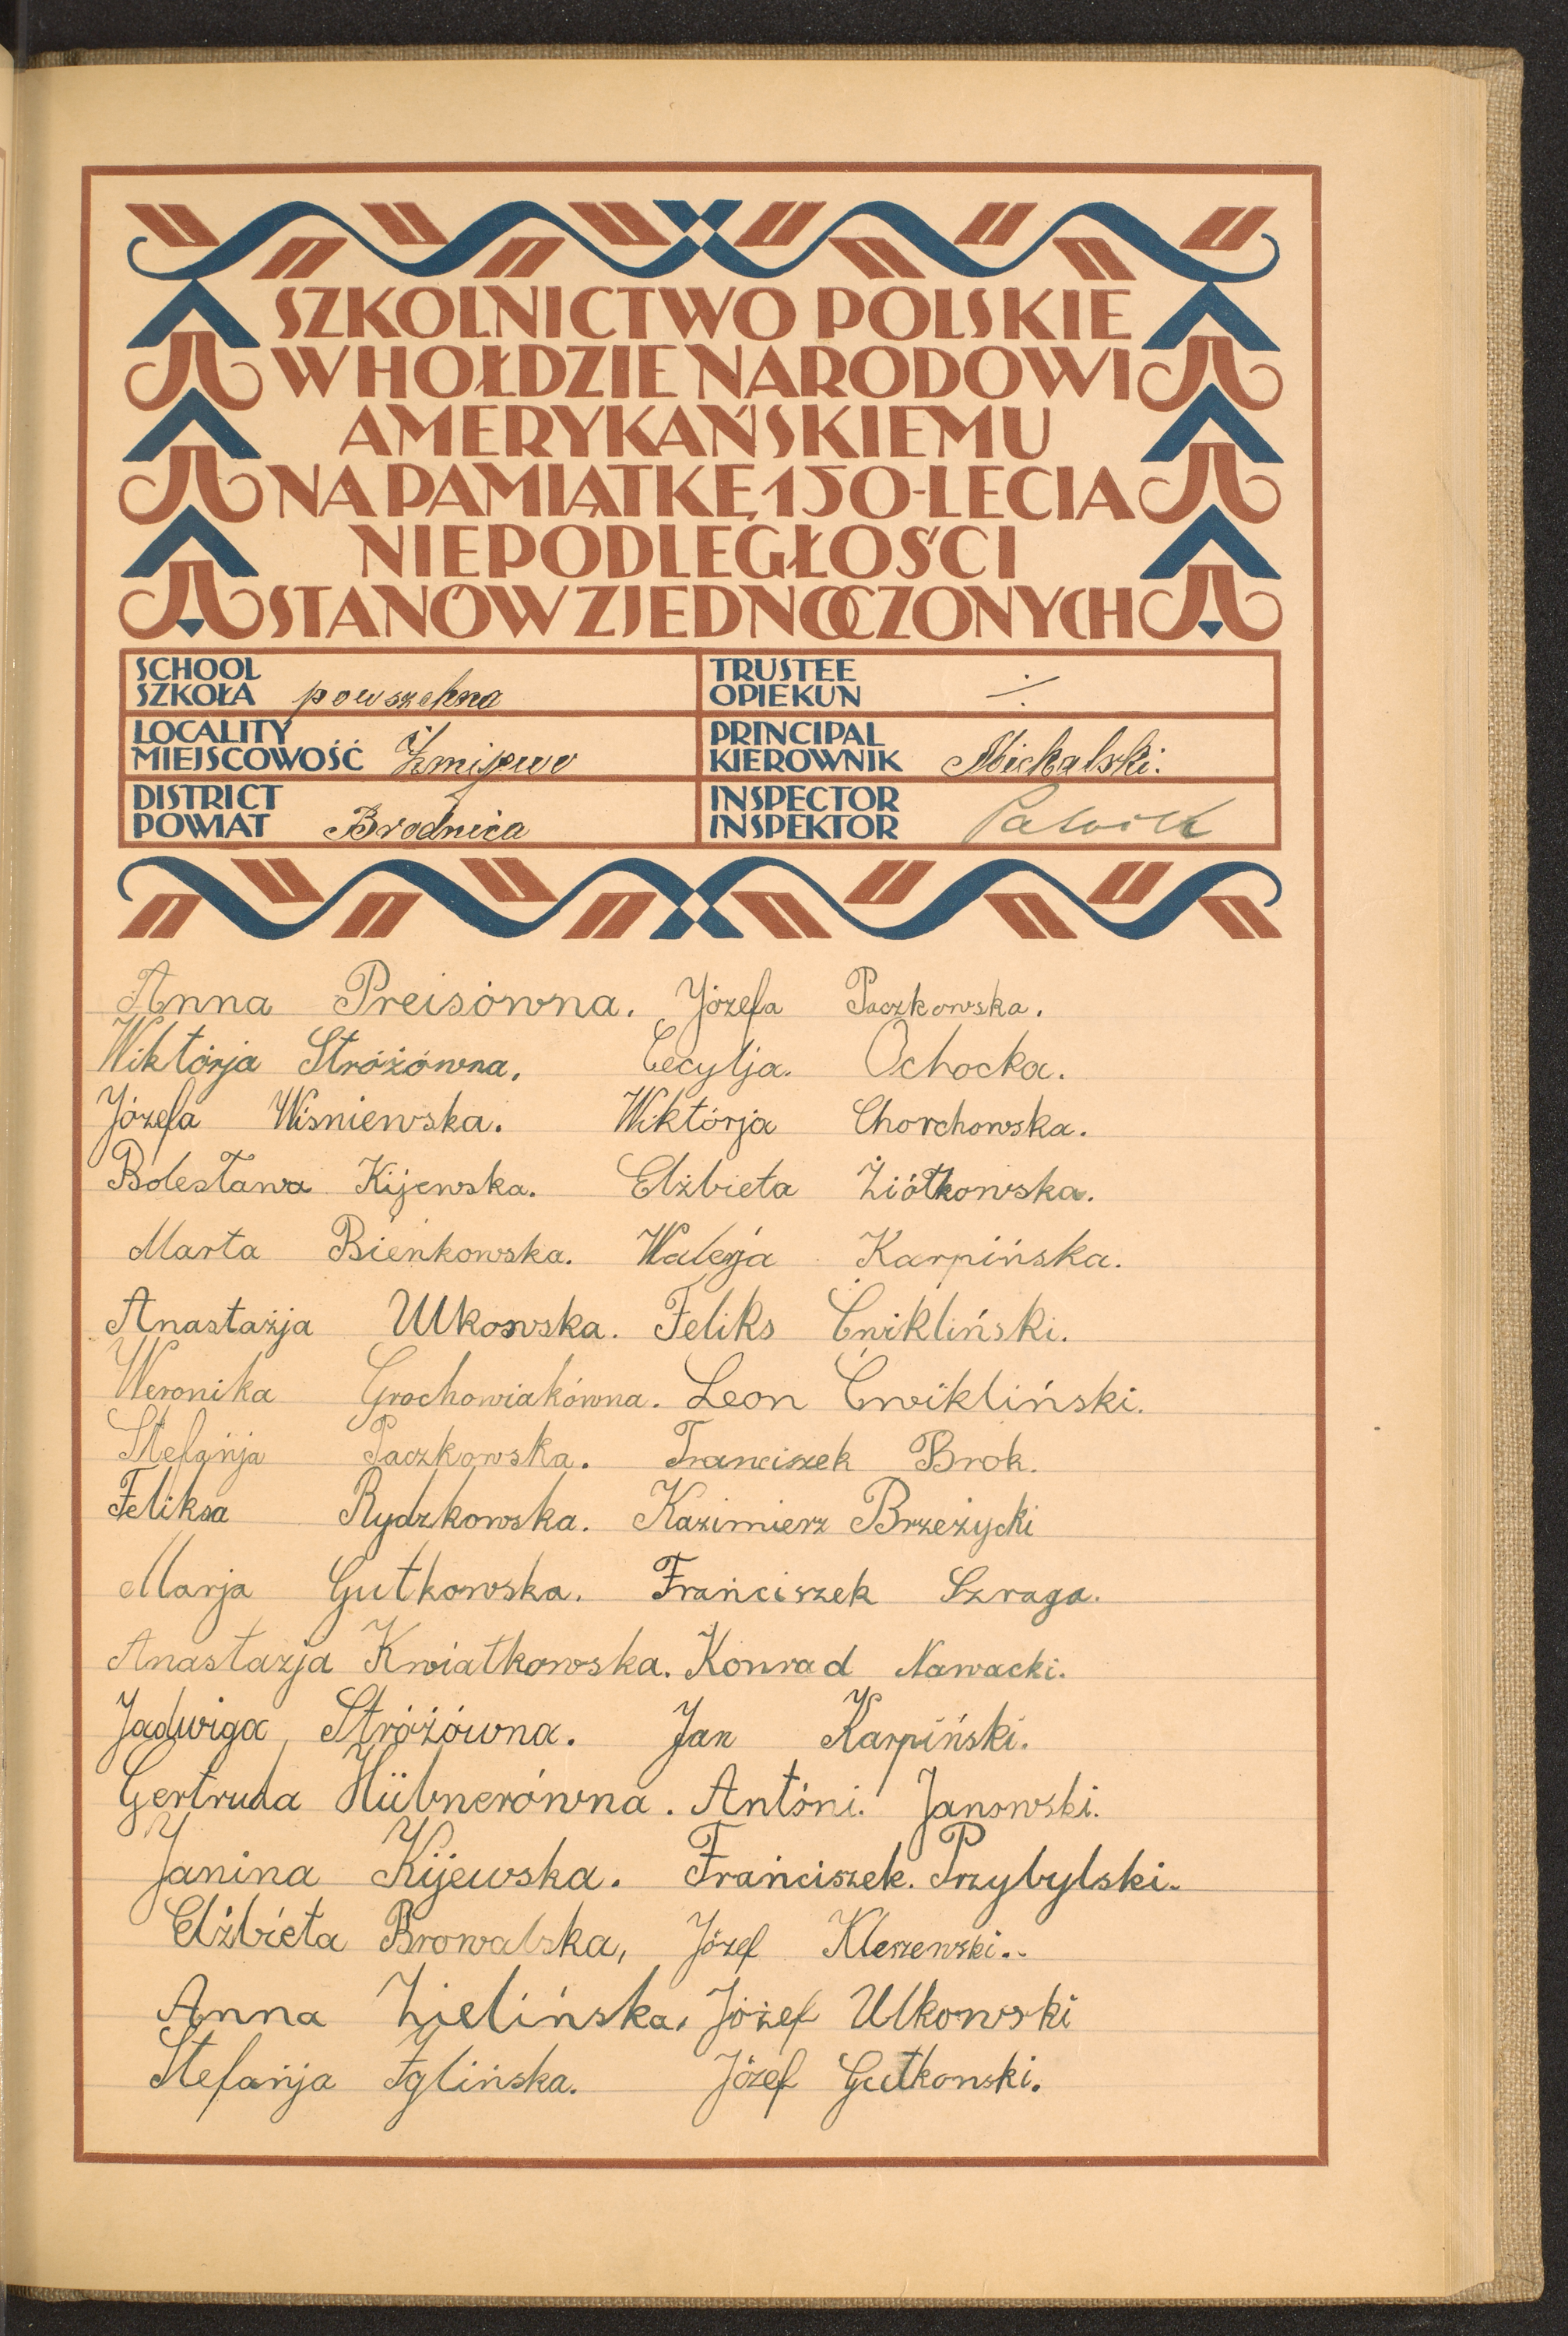 SZKOLNICTWO POLSKIE
W HOŁDZIE NARODOWI
AMERYKAŃSKIEMU
NA PAMIĄTKĘ 150-LECIA
NIEPODLEGŁOŚCI
STANÓW ZJEDNOCZONYCH
SCHOOL
SZKOŁA powszechna
TRUSTEE
OPIEKUN ÷
LOCALITY
MIEJSCOWOŚĆ Żmijewo
PRINCIPAL
KIEROWNIK Michalski.
DISTRICT
POWIAT Brodnica
INSPECTOR
INSPEKTOR
Anna Preisówna. Józefa Paczkowska.
Wiktórja Stróżówna. Cecylja. Ochocka.
Józefa Wiśniewska. Wiktórja Chorchowska.
Bolesława Kijewska. Elżbieta Żiółkowska.
Marta Bieńkowska. Walerja Karpińska.
Anastazja Ulkowska. Feliks Ćwikliński.
Weronika Grochowiakówna. Leon Ćwikliński.
Stefańja Paczkowska. Franciszek Brok.
Feliksa Rydzkowska. Kazimierz Brzeżycki
Marja Gutkowska. Frańciszek Szraga.
Anastazja Kwiatkowska. Konrad Nawacki.
Jadwiga Stróżówna. Jan Karpiński.
Gertruda Hübnerówna. Antóni. Janowski.
Janina Kijewska. Frańciszek. Przybylski.
Elżbieta Browalska, Józef Kleszewski..
Anna Zielińska, Józef Ulkowski
Stefańja Iglińska. Józef Gutkowski.